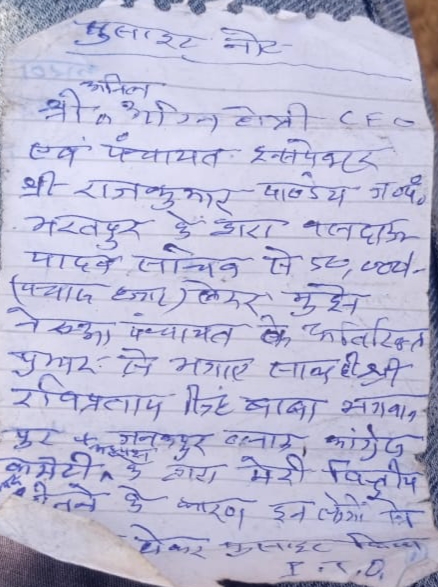 सुसाइट नोट
अनिल
श्री अग्नि होत्री CEO
एवं पंचायत इन्सपेक्टर
श्री राजकुमार पाण्डेय ज०पं०
भरतपुर के द्वारा बलदाऊ
यादव सचिव से 50,000/-
(पचास हजार) लेकर मुझे
नेरुआ पंचायत के अतिरिक्त
प्रभार से भगाए साथ ही श्री
रविप्रताप सिंह बाबा भगवान
पुर जनकपुर ब्लाक कांग्रेस
अध्यक्ष
कमेटी के द्वारा मेरी वित्तीय
के कारण इन लोगों से
होकर सुसाइट किया
P.T.O.